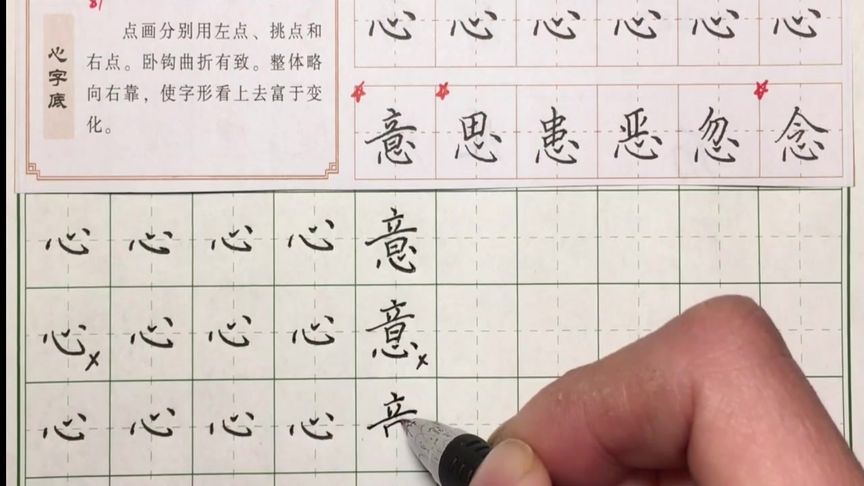 心字底
点画分别用左点、挑点和
右点。卧钩曲折有致。整体略
向右靠，使字形看上去富于变
化。
心 心 心 心 心 心
意 思 患 恶 忽 念
心 心 心 心 意
心 心 心 心 意
心 心 心 心